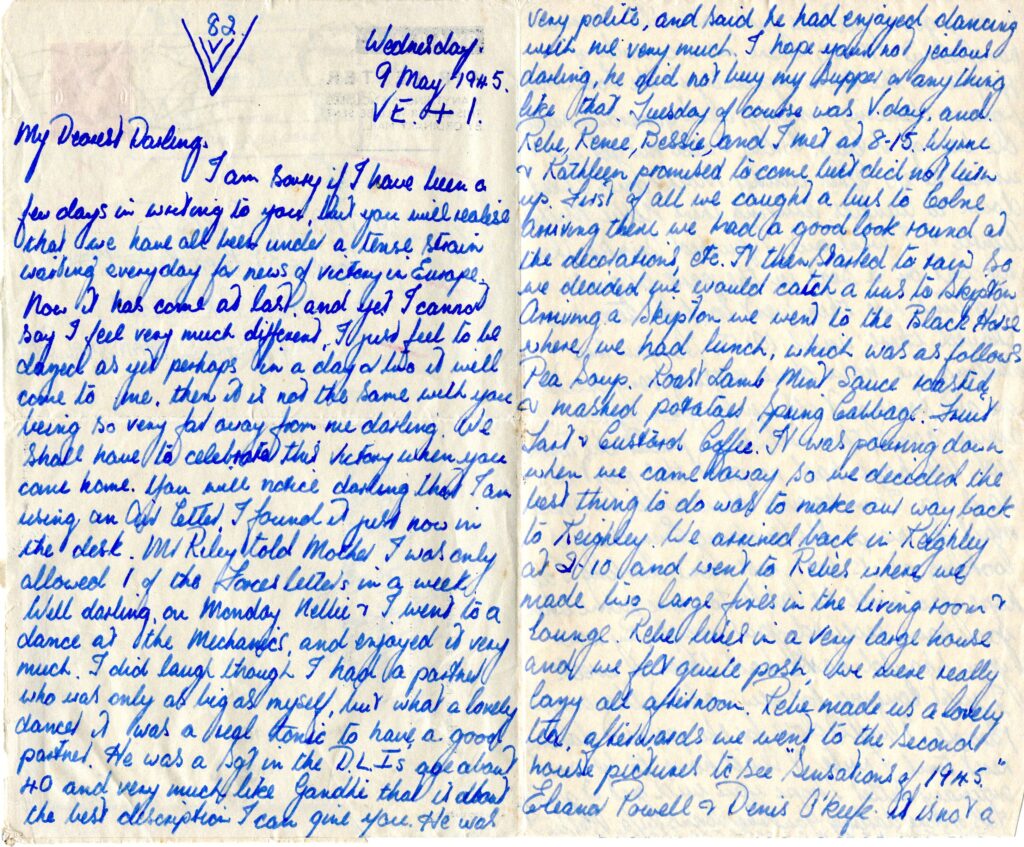 82.
Wednesday.
9 May 1945.
VE. + 1.
My Dearest Darling.
I am sorry if I have been a
few days in writing to you, but you will realise
that we have all been under a tense strain
waiting everyday for news of victory in Europe.
Now it has come at last, and yet I cannot
say I feel very much different, I just feel to be
dazed as yet perhaps in a day or two it will
come to me, then it is not the same with you
being so very far away from me darling. We
shall have to celebrate this victory when you
come home. You will notice darling that I am
using an Air Letter, I found it just now in
the desk. Mr Riley told Mother I was only
allowed 1 of the Forces letters in a week.
Well darling, on Monday Nellie & I went to a
dance at the Mechanics, and enjoyed it very
much. I did laugh though I had a partner
who was only as big as myself, but what a lovely
dancer it was a real tonic to have a good
partner. He was a Sgt in the D.L.I's age about
40 and very much like Gandhi that is about
the best description I can give you. He was
very polite, and said he had enjoyed dancing
with me very much. I hope your not jealous
darling, he did not buy my supper or anything
like that. Tuesday of course was V. day, and
Rebe, Renee, Bessie, and I met at 8-15. Wynne
& Kathleen promised to come but did not turn
up. First of all we caught a bus to Colne
arriving there we had a good look round at
the decorations, etc. It then started to rain so
we decided we would catch a bus to Skipton
Arriving a Skipton we went to the Black Horse
where, we had lunch, which was as follows
Pea Soup. Roast Lamb Mint Sauce roasted
& mashed potatoes Spring Cabbage. Fruit
Tart & Custard Coffee. It was pouring down
when we came away so we decided the
best thing to do was to make our way back
to Keighley. We arrived back in Keighley
at 2-10 and went to Rebe's where we
made two large fires in the living room &
Lounge. Rebe lives in a very large house
and we felt quite posh, we were really
lazy all afternoon. Rebe made us a lovely
tea, afterwards we went to the second
house pictures to see "Sensations of 1945"
Eleanor Powell & Denis O'keefe. It is not a